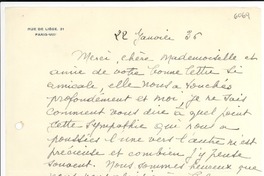 6069
RUE DE LIÈGE, 21
PARIS-VIII
22 Janvier 36
Merci, chère Mademoiselle et
amie de votre bonne lettre si
amicale, elle nous a touchés
profondément et moi je ne sais
comment vous dire à quel point
cette sympathie qui nous a
poussées l'une vers l'autre m'est
précieuse et combien j'y pense
souvent. Nous sommes heureux que